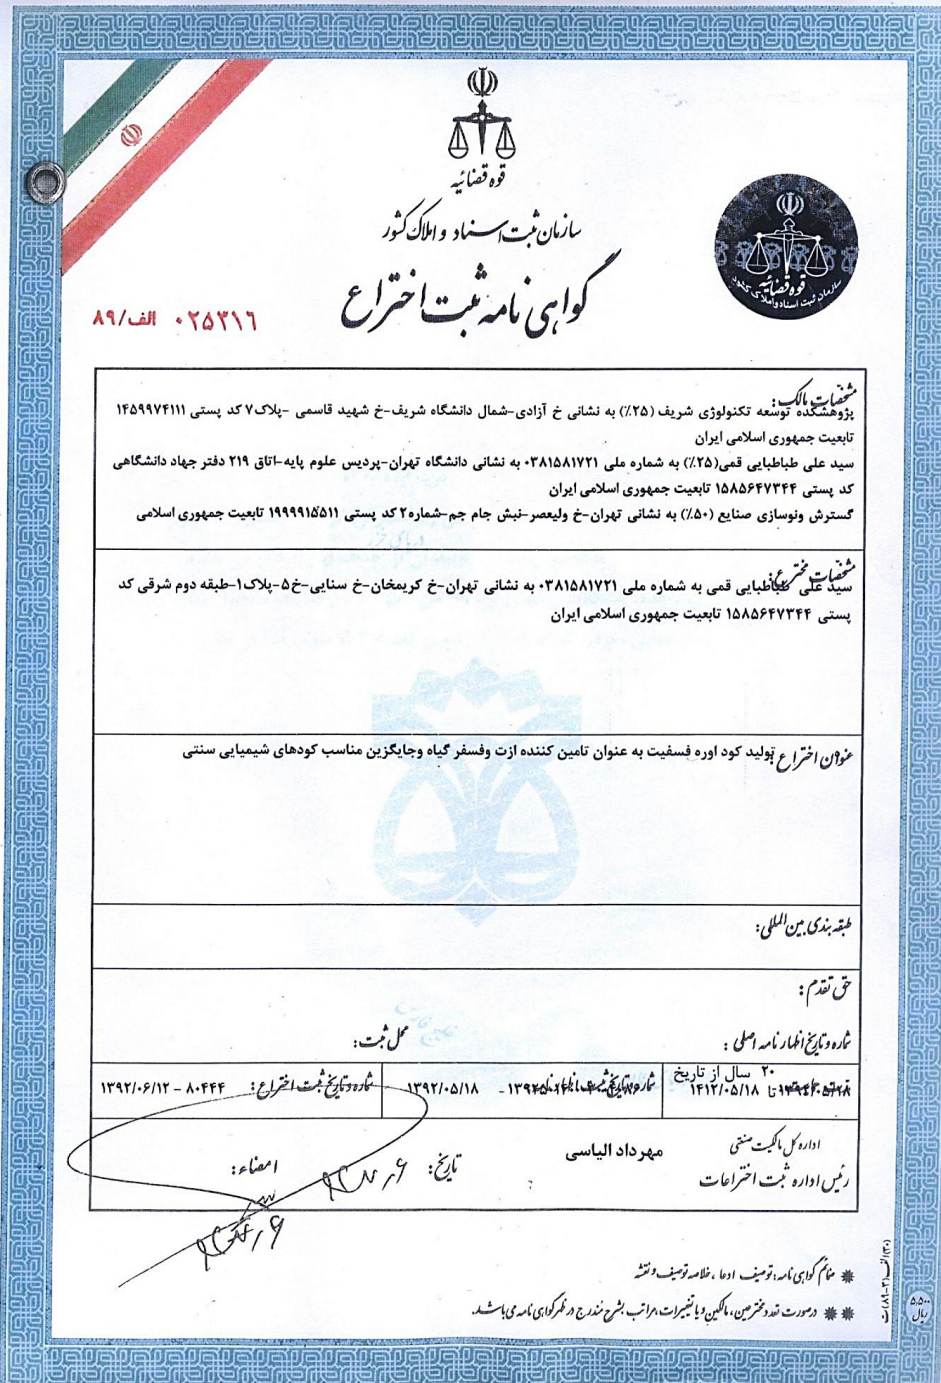 قوه قضائیه
سازمان ثبت اسناد و املاک کشور
گواهی نامه ثبت اختراع
قوه قضائیه
سازمان ثبت اسناد و املاک کشور
۰۲۵۳۱۶ الف/۸۹
مشخصات مالک:
پژوهشکده توسعه تکنولوژی شریف (۲۵٪) به نشانی خ آزادی-شمال دانشگاه شریف-خ شهید قاسمی -پلاک۷ کد پستی ۱۴۵۹۹۷۴۱۱۱
تابعیت جمهوری اسلامی ایران
سید علی طباطبایی قمی(۲۵٪) به شماره ملی ۰۳۸۱۵۸۱۷۲۱ به نشانی دانشگاه تهران-پردیس علوم پایه-اتاق ۲۱۹ دفتر جهاد دانشگاهی
کد پستی ۱۵۸۵۶۴۷۳۴۴ تابعیت جمهوری اسلامی ایران
گسترش ونوسازی صنایع (۵۰٪) به نشانی تهران-خ ولیعصر-نبش جام جم-شماره۲ کد پستی ۱۹۹۹۹۱۵۵۱۱ تابعیت جمهوری اسلامی
مشخصات مخترع:
سید علی طباطبایی قمی به شماره ملی ۰۳۸۱۵۸۱۷۲۱ به نشانی تهران-خ کریمخان-خ سنایی-خ۵-پلاک۱-طبقه دوم شرقی کد
پستی ۱۵۸۵۶۴۷۳۴۴ تابعیت جمهوری اسلامی ایران
عنوان اختراع: تولید کود اوره فسفیت به عنوان تامین کننده ازت وفسفر گیاه وجایگزین مناسب کودهای شیمیایی سنتی
طبقه بندی بین المللی:
حق تقدم:
شماره و تاریخ اظهارنامه اصلی: محل ثبت:
۲۰ سال از تاریخ
۱۳۹۲/۰۵/۱۸ تا ۱۴۱۲/۰۵/۱۸
شماره و تاریخ ثبت اظهارنامه - ۱۳۹۲/۰۵/۱۸
شماره و تاریخ ثبت اختراع: ۸۰۴۴۴ - ۱۳۹۲/۰۶/۱۲
اداره کل مالکیت صنعتی
رئیس اداره ثبت اختراعات مهرداد الیاسی تاریخ: امضاء:
❋ ضمائم گواهی نامه: توصیف، ادعا، خلاصه توصیف و نقشه
❋ ❋ درصورت تعدد مخترعین، مالکین و یا تغییرات، مراتب بشرح مندرج در ظهر گواهی نامه می باشد.
۵۵۰۰ ریال